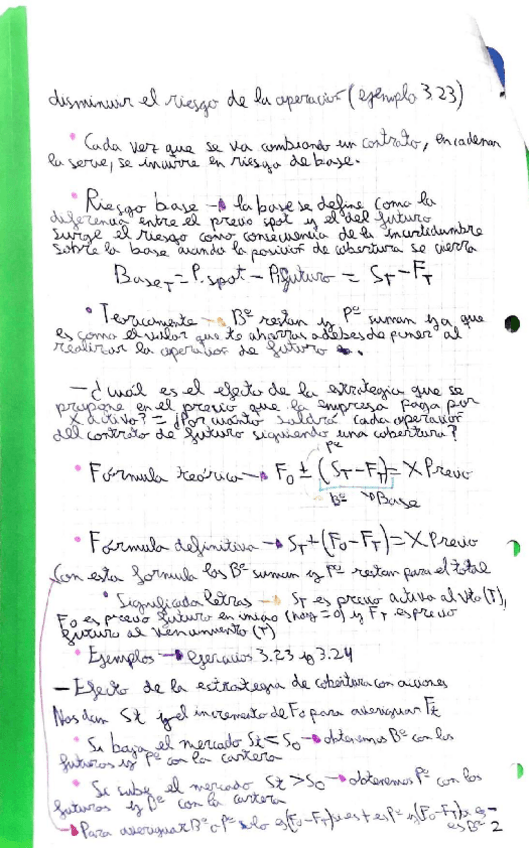 disminuir el riesgo de la operación (ejemplo 3.23)
• Cada vez que se va cambiando un contrato, encadenan
la serie, se incurre en riesgo de base.
• Riesgo base → la base se define como la
diferencia entre el precio spot y el del futuro
surge el riesgo como consecuencia de la incertidumbre
sobre la base cuando la posición de cobertura se cierra
Base_T = P. spot - P. futuro = S_T - F_T
• Teoricamente → Bº restan y Pº suman ya que
es como el valor que te ahorras o debes de poner al
realizar la operacion de futuro
- ¿Cuál es el efecto de la estrategia que se
propone en el precio que la empresa paga por
X activo? = ¿Por cuánto saldrá cada operación
del contrato de futuro siguiendo una cobertura?
Pº
• Fórmula teórica → F_0 ± (S_T - F_T) = X Precio
Bº → Base
• Fórmula definitiva → S_T ± (F_0 - F_T) = X Precio
Con esta formula los Bº suman y Pº restan para el total
• Significado letras → S_T es precio activo al vto (T),
F_0 es precio futuro en inicio (hoy = 0) y F_T es precio
futuro al vencimiento (T)
• Ejemplos → Ejercicios 3.23 y 3.24
- Efecto de la estrategia de cobertura con acciones
Nos dan St y el incremento de F_0 para averiguar Ft
• Si baja el mercado St < S_0 → obtenemos Bº con los
futuros y Pº con la cartera
• Si sube el mercado St > S_0 → obtenemos Pº con los
futuros y Bº con la cartera
→ Para averiguar Bº o Pº solo es (F_0 - F_T) x es + es Pº y (F_0 - F_T) x es -
es Bº 2